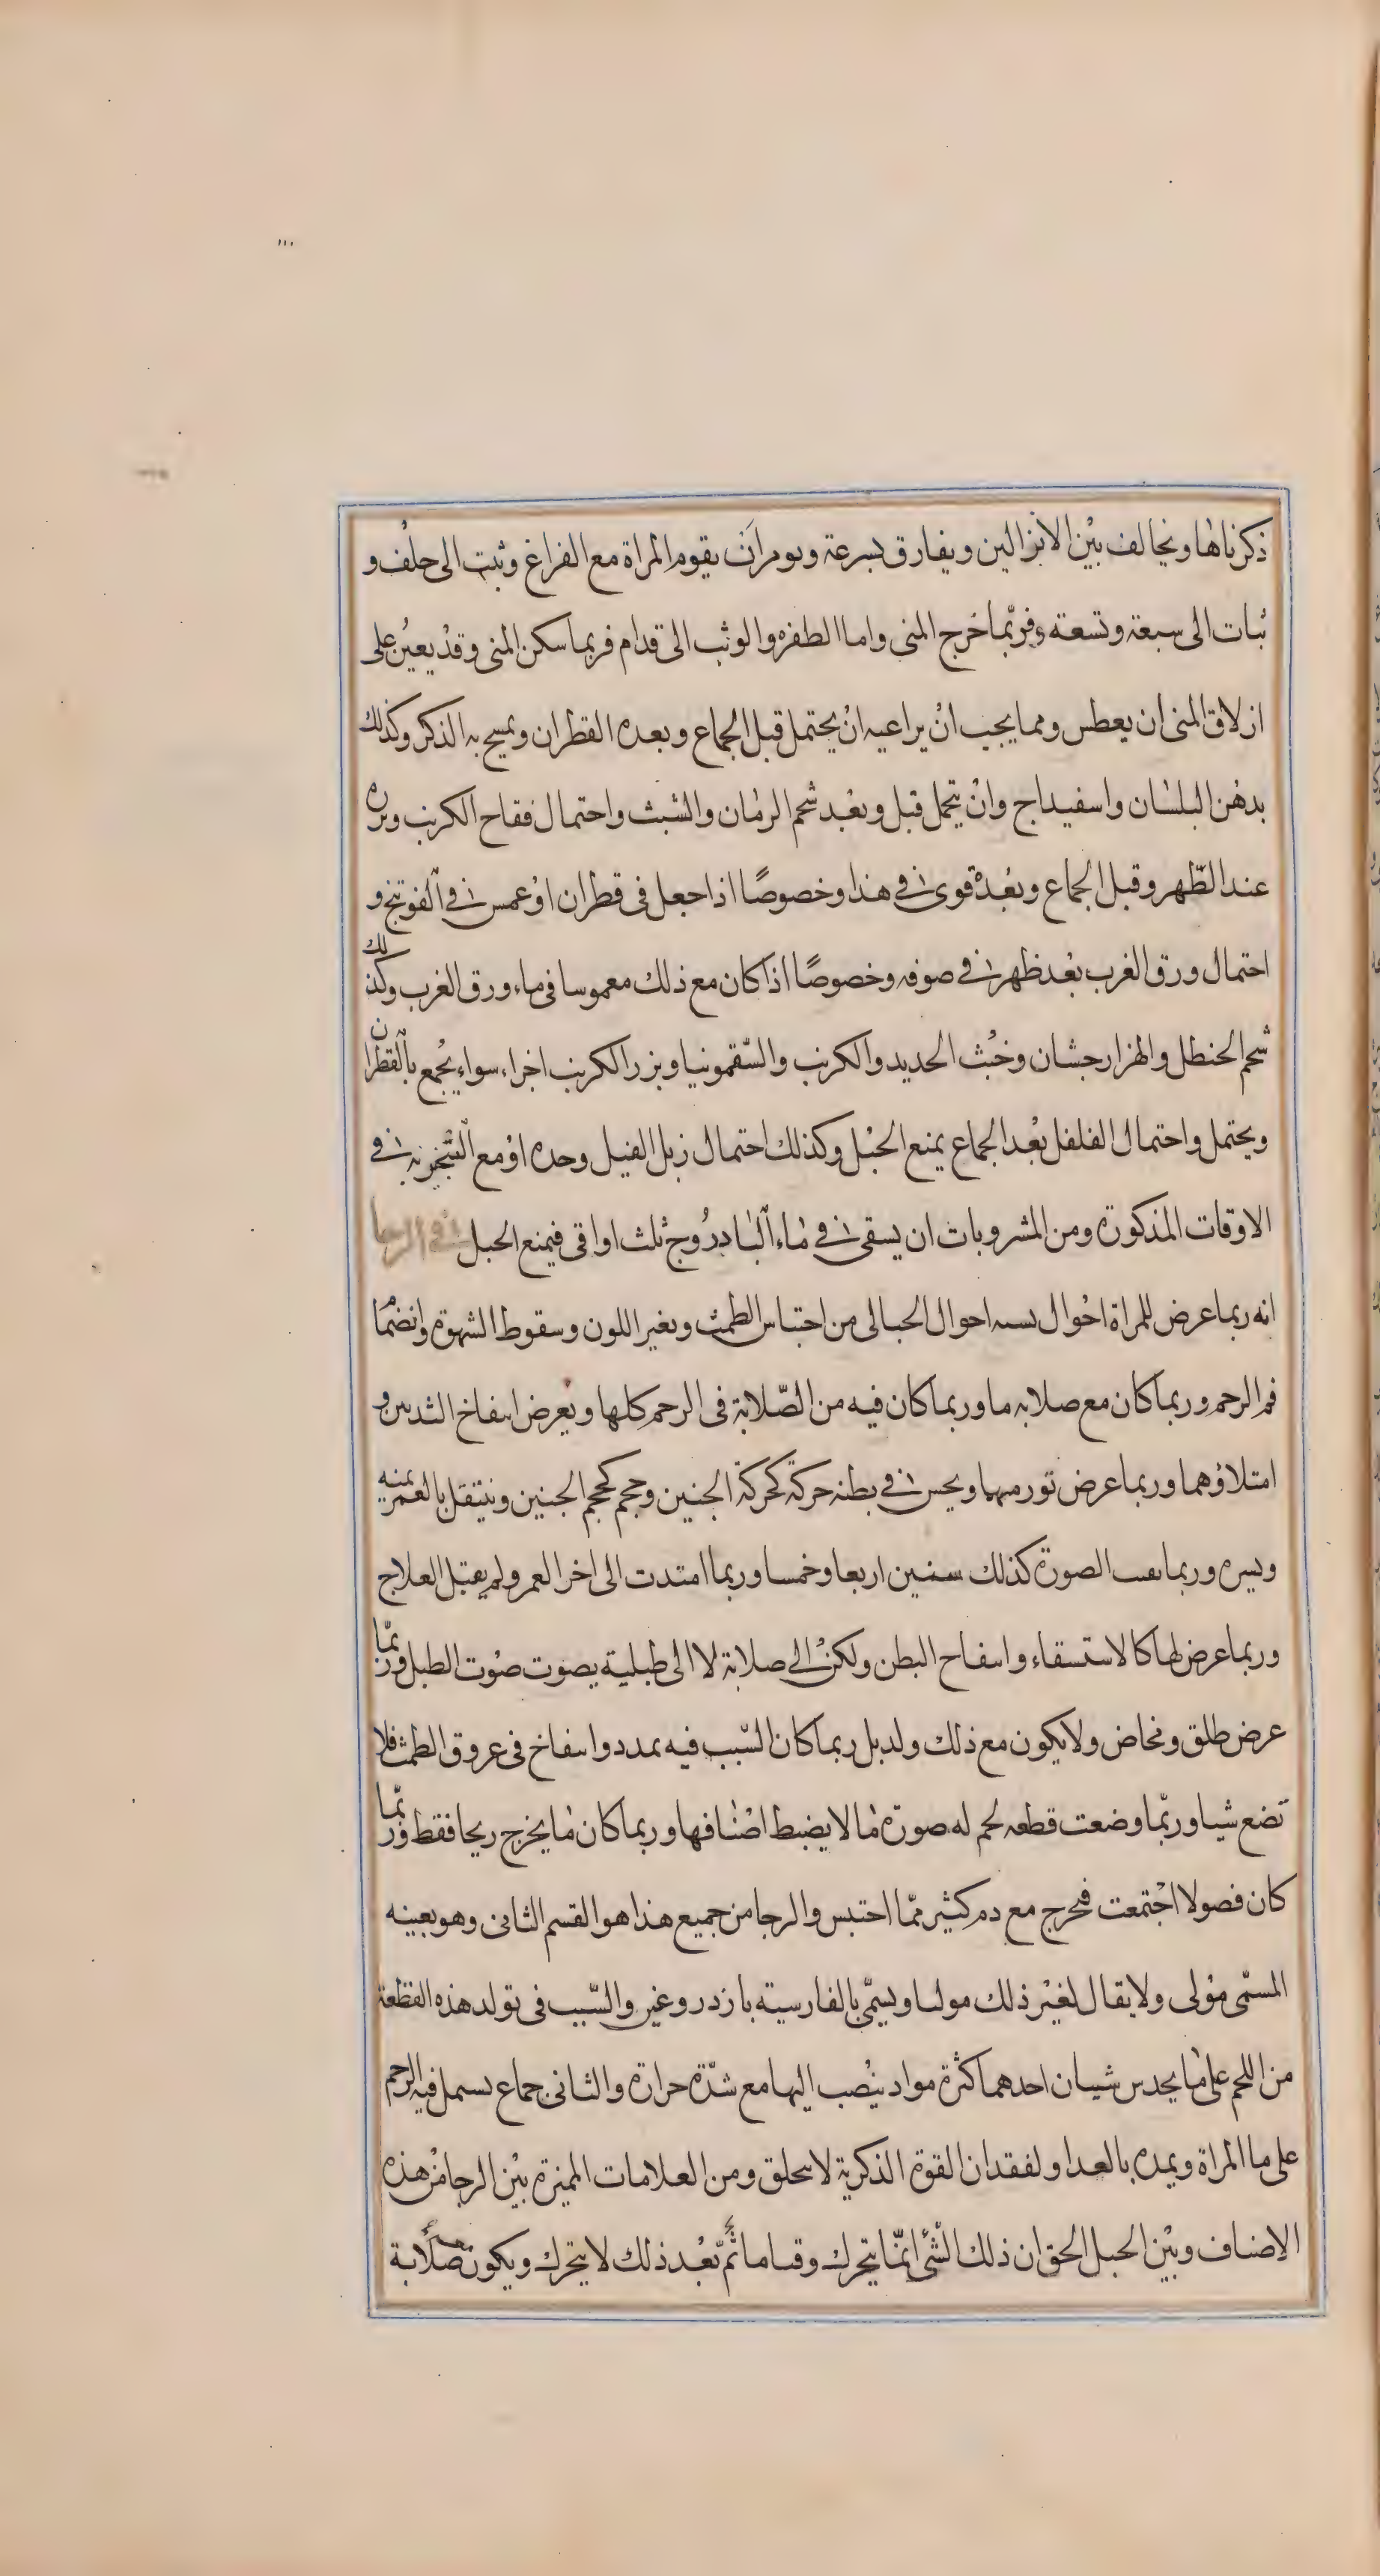 ذكرناها ويخالف بين الانزالين ويفارق بسرعة ويومر ان يقوم المراة مع الفراغ وثبت الى خلف و
ثبات الى سبعة وتسعة فربّما خرج المنى واما الطفره والوثب الى قدام فربما سكن المنى وقد يعين على
ازلاق المنى ان يعطس ومما يجب ان يراعيه ان يحتمل قبل الجماع وبعده القطران ويمسح به الذكر وكذلك
بدهن البلسان واسفيداج وان يتحمل قبل وبعد شحم الرمان والشبث واحتمال فقاح الكرنب وبزره
عند الطّهر وقبل الجماع وبعده قوى فى هذا وخصوصًا اذا جعل فى قطران او غمس فى الفوتنج و
احتمال ورق الغرب بعد ظهر فى صوفه وخصوصًا اذا كان مع ذلك معموسا فى ماء ورق الغرب وكذلك
شحم الحنظل والهزارجشان وخبث الحديد والكرنب والسّقمونيا وبزر الكرنب اجزاء سواء يجمع بالقطران
ويحتمل واحتمال الفلفل بعد الجماع يمنع الحبل وكذلك احتمال زبل الفيل وحده او مع التبخر به فى
الاوقات المذكورة ومن المشروبات ان يسقى فى ماء البادروج ثلث اواقى فيمنع الحبل فى الرحا
انه ربما عرض للمراة احوال يسبه احوال الحبالى من احتباس الطمث وتغير اللون وسقوط الشهوة وانضمام
فم الرحم وربما كان مع صلابه ما وربما كان فيه من الصّلابة فى الرحم كلها ويعرض انتفاخ الثديين و
امتلاؤهما وربما عرض تورمهما ويحس فى بطنه حركة كحركة الجنين وحجم كحجم الجنين وينتقل بالغمز يمنه
ويسره وربما بقيت الصورة كذلك سنين اربعا وخمسا وربما امتدت الى اخر العمر ولم يقبل العلاج
وربما عرض لها كالاستسقاء وانتفاخ البطن ولكن الى صلابة لا الى طبلية يصوت صوت الطبل وربّما
عرض طلق ومخاض ولا يكون مع ذلك ولد بل ربما كان السّبب فيه تمدد وانتفاخ فى عروق الطمث فلا
تضع شيا وربّما وضعت قطعه لحم له صورة ما لا يضبط اصنافها وربما كان ما يخرج ريحا فقط وربّما
كان فصولا اجتمعت فيخرج مع دم كثير ممّا احتبس والرجا من جميع هذا هو القسم الثانى وهو بعينه
المسمّى مولى ولا يقال لغير ذلك موليا ويسمّى بالفارسيته باردروغين والسّبب فى تولد هذه القطعة
من اللحم على ما يحدس شيان احدهما كثرة مواد ينصب اليها مع شدّة حرارة والثانى جماع يشمل فيه الرحم
على ما المراة ويمده بالغدا ولفقدان القوة الذكرية لا يتخلق ومن العلامات المميزة بين الرجا من هذه
الاصناف وبين الحبل الحق ان ذلك الشئ انّما يتحرك وقتا ما ثمّ بعد ذلك لا يتحرك ويكون صلابة